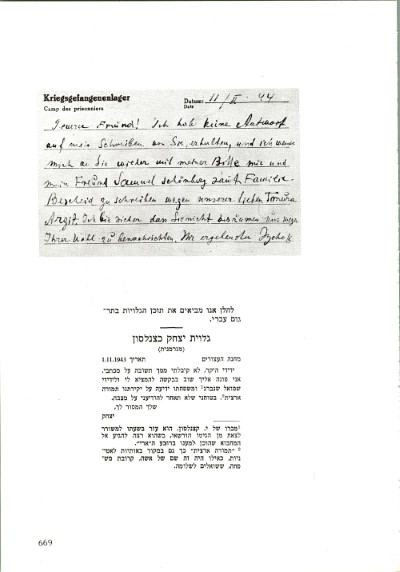 Kriegsgefangenenlager
Camp des prisonniers
Datum: 11/II. 44
Date
Freund! Ich hab keine Antwort
auf mein Schreiben von Sie, erhalten, und ich wende
mich an Sie wieder mit meiner Bitte mir und
mein Freund Samuel Schönberg samt Familie
Bescheid zu schreiben wegen unserer lieben Temura
Arzit. Ich bin sicher dass Sie nicht
Ihrer Wohl zu benachrichten. Ihr ergebener
להלן אנו מביאים את תוכן הגלויות בתר־
גום עברי.
גלוית יצחק כצנלסון
(מגרמנית)
מחנה העצורים
תאריך 1.11.1943
ידידי היקר. לא קיבלתי ממך תשובה על מכתבי.
אני פונה אליך שוב בבקשה להמציא לי ולידידי
שמואל שנברג¹ ומשפחתו ידיעה על יקירתנו תמורה
ארצית². בטוחני שלא תאחר להודיעני על מצבה.
שלך המסור לך,
יצחק
¹ מכרו של י. קצנלסון. הוא עזר בשעתו למשורר
לצאת מן הגיטו הורשאי, כשהוא רצה להגיע אל
המחבוא שהוכן למענו ברובע ה"ארי".
² "תמורה ארצית" כך גם במקור באותיות לאטי־
ניות, כאילו היה זה שם של אשה, קרובת מש־
פחה, ששואלים לשלומה.
669